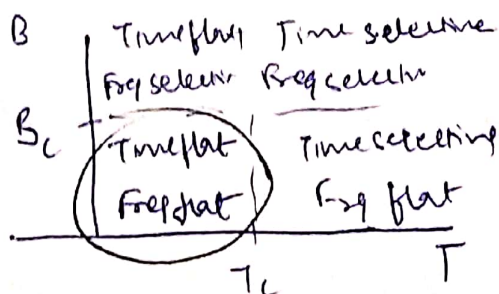 B Timeflat, Time selective
Freq selectiv Freq selectiv
Bc Timeflat Time selecting
Freq flat Frq flat
Tc T